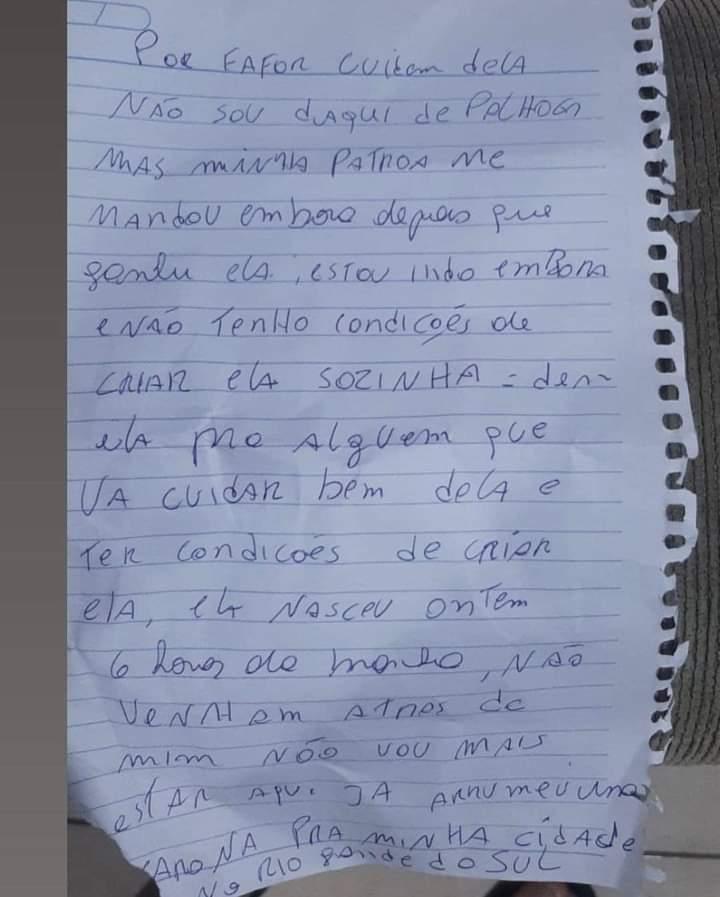 Por FAFOR CUitam delA
NÃO SOU dAQUI de PALHOSA
MAS MINHA PATROA Me
MANDOU embora depois que
ganhu elA, ESTOU indo emBora
e NÃO TenHo condicoẽs de
CRIAR elA SOZINHA = den
elA pra Alguem que
VA CUIDAR bem delA e
Ter condicoẽs de criar
elA, elA NASCEU onTem
6 horas da manhã, NÃO
VeNHam ATRAS de
mim NÃO VOU MAIS
estAR Aqui JA ARRUMEI UMA
CARONA PRA MINHA CidAde
No RIO grande do SUL